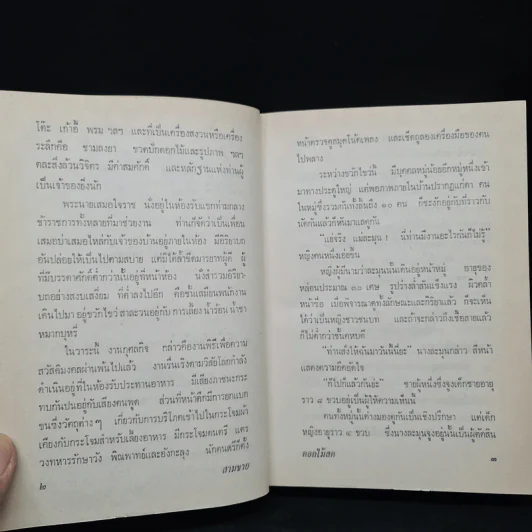 โต๊ะ เก้าอี้ พรม ฯลฯ และที่เป็นเครื่องสงวนหรือเครื่อง
ระลึกคือ ชามลงยา ขวดปักดอกไม้และรูปภาพ ฯลฯ
ล้วนวิจิตร มีค่าสมศักดิ์ และหลักฐานแห่งท่านผู้
เป็นเจ้าของยิ่งนัก
พระนายเสมอใจราช นั่งอยู่ในห้องรับแขกท่ามกลาง
ข้าราชการทั้งหลายที่มาช่วยงาน ท่านก็จัดว่าเป็นเพื่อน
เสมอบ่าเสมอไหล่กับเจ้าของบ้านอยู่ภายในห้อง มีอิริยาบถ
อันปล่อยให้เป็นไปตามสบาย แต่มิได้ล้ำขีดมารยาทผู้ดี ผู้
ที่มีบรรดาศักดิ์ต่ำกว่านั้นอยู่ที่หน้าห้อง
บถอย่างสงบเสงี่ยม ที่ต่ำลงไปอีก คือชั้นเสมียนพนักงาน
เดินไปมา อยู่ขวักไขว่ สาละวนอยู่กับ การเลี้ยงน้ำร้อน น้ำชา
หมากบุหรี่
ในวาระนี้ งานกุศลกิจ กล่าวคืองานพิธีเพื่อความ
สวัสดิมงคลผ่านพ้นไปแล้ว งานรื่นเริงตามวิสัยโลกกำลัง
ดำเนินอยู่ที่ในห้องรับประทานอาหาร มีเสียงภาชนะกระ
ทบกันปนอยู่กับเสียงคนพูด ส่วนที่หน้าตึกมีการยกภา
ชนะซึ่งวัตถุต่าง ๆ เกี่ยวกับการบริโภคเข้าไปในกระโจมผ้า
เคียงกับกระโจมสำหรับเลี้ยงอาหาร มีกระโจมดนตรี แตร
วงทหารรักษาวัง พิณพาทย์และอังกะลุง นักดนตรีกำลัง
๒
สามชาย
หน้าตรวจดูสมุดโน้ตเพลง และเช็ดถูลองเครื่องมือของตน
ไปพลาง
ระหว่างขวักไขว่นี้ มีบุคคลหมู่น้อยอีกหมู่หนึ่งเข้า
มาทางประตูใหญ่ แต่พอภาพภายในบ้านปรากฏแก่ตา คน
ในหมู่ซึ่งรวมกันทั้งสิ้นถึง ๑๐ คน ก็ชะงักอยู่กับที่ราวกับ
นัดกันแล้วก็หันมาแลดูกัน
"แย่จริง แม่ละมุน ! นี่ท่านมีงานอะไรกันก็ไม่รู้"
หญิงคนหนึ่งเอ่ยขึ้น
หญิงผู้มีนามว่าละมุนนั้นเดินอยู่หน้าหมู่ อายุของ
หล่อนประมาณ ๓๐ เศษ รูปร่างล่ำสันแข็งแรง ผิวคล้ำ
หน้าซื่อ เมื่อพิจารณาดูทั้งลักษณะและกิริยาแล้ว ก็จะเห็น
ได้ว่าเป็นหญิงชาวชนบท และถ้าจะกล่าวถึงเชื้อสายแล้ว
ก็ไม่ต่ำกว่าชั้นคหบดี
"ท่านสั่งให้ฉันมาวันนี้นี่ยะ" นางละมุนกล่าว สีหน้า
แสดงความอึดอัดใจ
"ก็ไปก็แล้วกันน่ะ" ชายผู้หนึ่งซึ่งจูงเด็กชายอายุ
ราว ๘ ขวบอยู่เป็นผู้ให้ความเห็น
คนทั้งหมู่นั้นต่างมองดูกันเป็นเชิงปรึกษา แต่เด็ก
หญิงอายุราว ๔ ขวบ ซึ่งนางละมุนจูงอยู่นั้นเป็นผู้ตัดสิน
ดอกไม้สด
๓